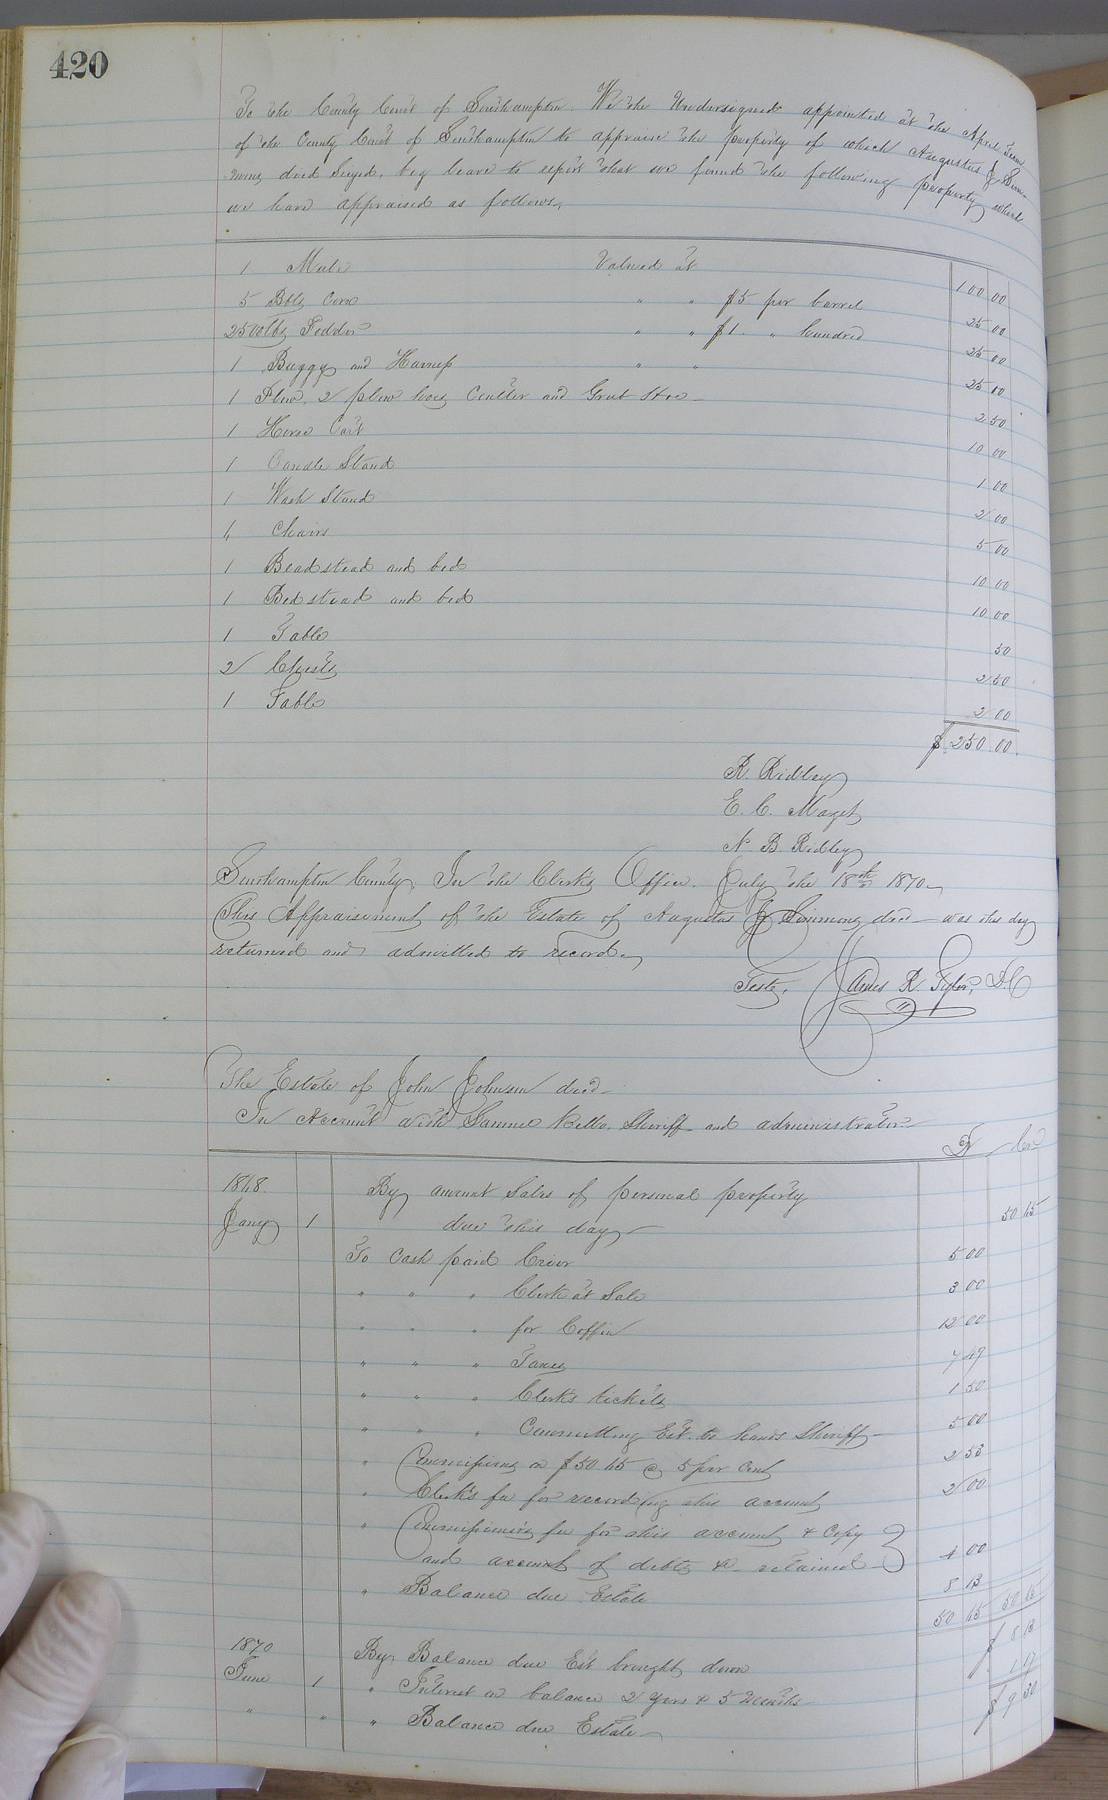 420
To the County Court of Southampton. We the Undersigned appointed at the April Term
of the County Court of Southampton to appraise the property of which Augustus J Sim-
mons decd Seized, beg leave to report that we found the following property which
we have appraised as follows,
1 Mule Valued at 100 00
5 Bbls Corn " " $5 per barrel 25 00
2500 lbs Fodder " " $1. " hundred 25 00
1 Buggy and Harness " " 25 00
1 Plow, 2 plow hoes, Coulter and Grub Hoe 2 50
1 Horse Cart 10 00
1 Candle Stand 1 00
1 Wash Stand 2 00
4 Chairs 5 00
1 Beadstead and bed 10 00
1 Bedstead and bed 10 00
1 Table 50
2 Chests 2 50
1 Table 2 00
$ 250 00
R. Ridley
E. C. Maget
N B Ridley
Southampton County, In the Clerks Office. July the 18th 1870
This Appraisement of the Estate of Augustus J Simmons decd was this day
returned and admitted to record
Teste, James R. Tyler, D.C
The Estate of John Johnson decd
In Account with Samuel Kello, Sheriff and administrator
Dr Cr
1868. By amount Sales of personal property
Jany 1 due this day 50 65
To Cash paid Crier 5 00
" " " Clerk at Sale 3 00
" " " for Coffin 12 00
" " " Taxes 7 49
" " " Clerks tickets 1 50
" " " Committing Est. to hands Sheriff 5 00
" Commissions on $50 65 @ 5 per Cent 2 53
" Clerk's fee for recording this account 2 00
" Commissioner's fee for this account & Copy
and account of debts &c retained 4 00
" Balance due Estate 8 13
50 65 50 65
1870 By Balance due Est brought down $ 8 13
June 1 " Interest on balance 2 years & 5 Months 1 17
" " " Balance due Estate $ 9 30